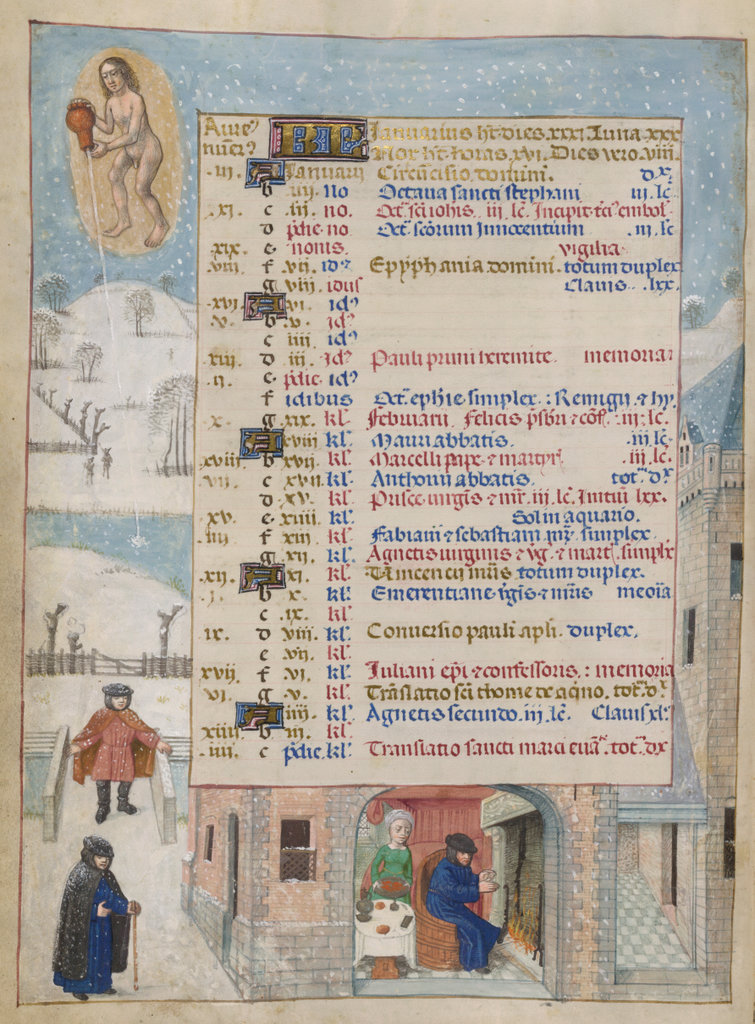 Aure⁹ Januarius h̅t dies xxxi. Luna xxx
nu̅er⁹ Nox h̅t horas xvi. Dies vero viii.
.iii. A Januarii Circu̅cisio domini. dx.
b iiii. no Octava sancti stephani iii. lc̅
.xi. c iii. no. Oct̅. sc̅i iohis. iii. lc̅. Incipit
d pdie. no Oct̅. sc̅orum Innocentium iii. lc̅
.xix. e nonis. vigilia
viii. f vii. id⁹ Epyphania domini. totum duplex
g viii. idus Clavis. lxx.
.xvi. A vi. id⁹
.v. b v. id⁹
c iiii. id⁹
xiii. d iii. id⁹ Pauli primi heremite. memoria
.ii. e pdie. id⁹
f idibus Oct̅. ephie simplex.: Remigii. &
x. g xix. kl. Februarii. Felicis .iii. lc̅.
A xviii kl. Mauri abbatis. .iii. lc̅.
xviii b xvii. kl. Marcelli pape & martyr .iii. lc̅.
.vii. c xvii. kl. Anthonii abbatis. tot. d⁹.
d xv. kl. Prisce virg̅is & m̅r. iii. lc̅. Initiu̅ lxx.
xv. e xiiii. kl. Sol in aquario.
.iiii. f xiii. kl. Fabiani & sebastiani simplex.
g xii. kl. Agnetis virginis & simplex
.xii. A xi. kl. Vincencii totum duplex.
.i. b x. kl. Emerentiane v̅gis &
c ix. kl.
ix. d viii. kl. Conversio pauli apli. duplex.
e vii. kl.
xvii. f vi. kl. Juliani ep̅i & confessoris.: memoria
vi. g v. kl. Translatio sc̅i thome de aqino. tot. d⁹.
A iiii. kl. Agnetis secundo. iii. lc̅. Clavis xl.
xiiii b iii. kl.
.iii. c pdie. kl. Translatio sancti marci eva̅. tot. dx